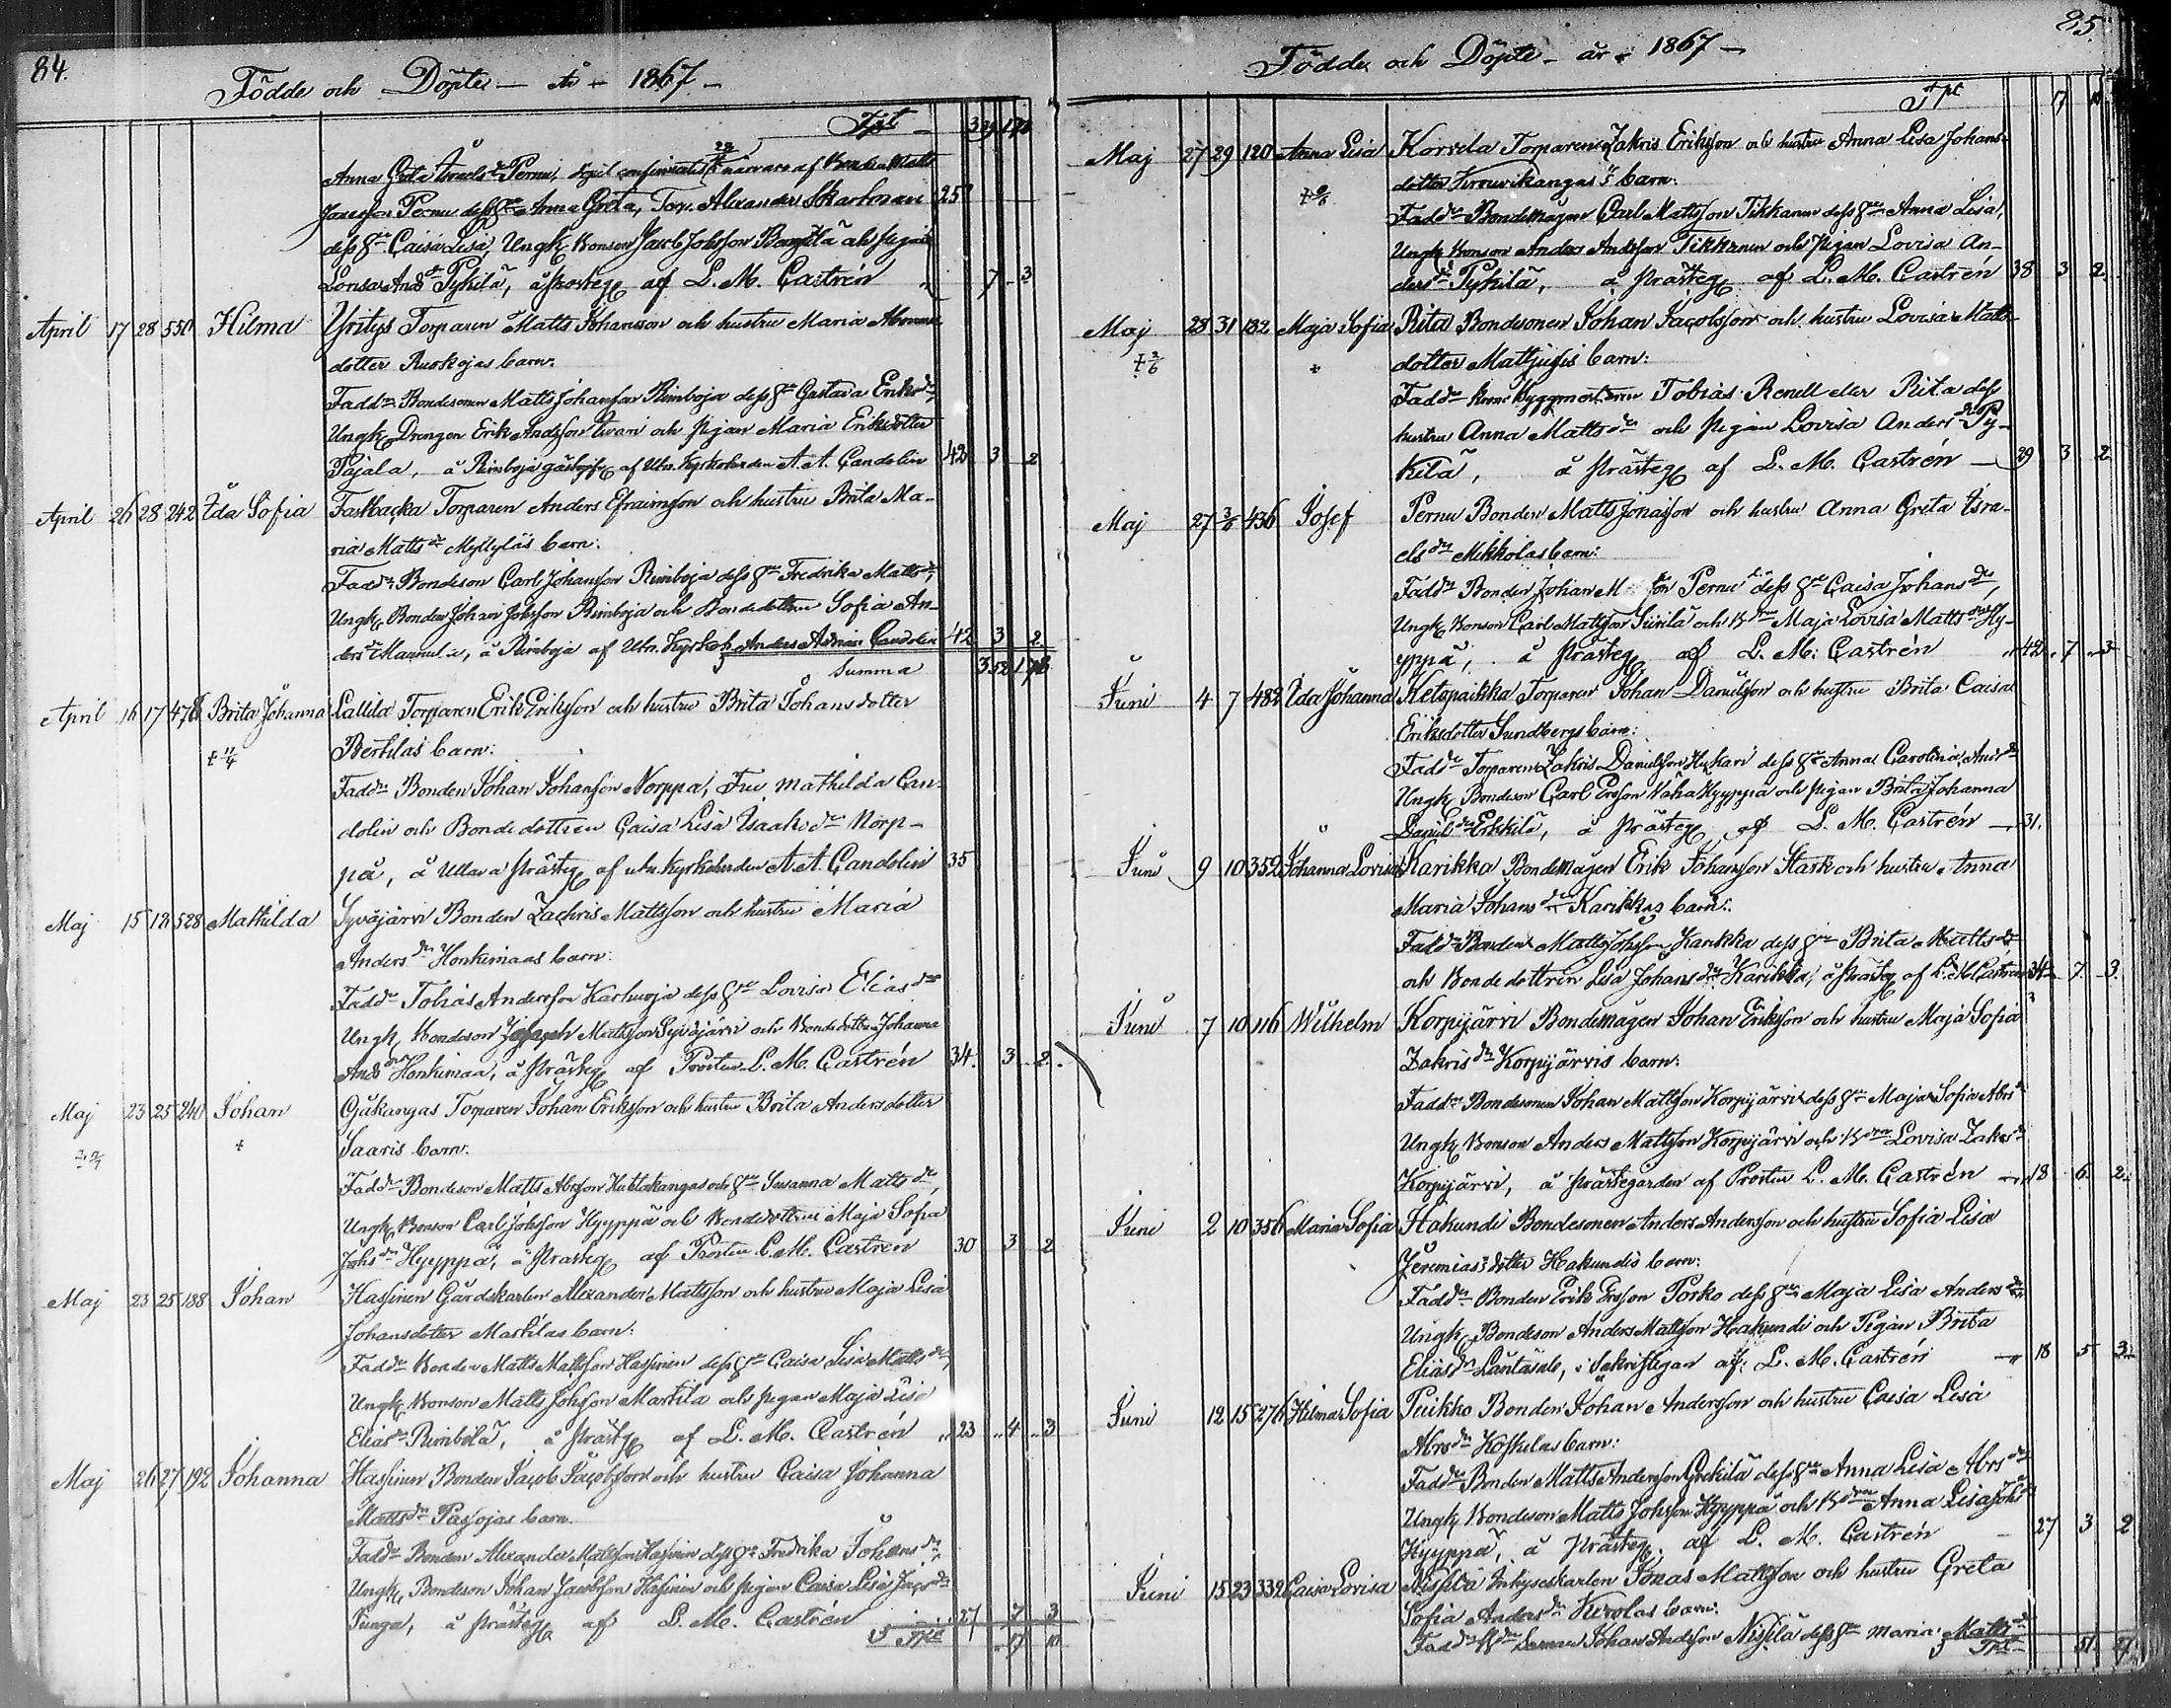 84.
Födde och Döpte — år — 1867 —
Tpt — 339 170
Anna Greta Israels dr Pernu, af Bonden Matts
Jonasson Pernu dess hu Anna Greta, Torp. Alexander Skarkonen 25
dess hu Caisa Lisa, Ungk. Bonson Jacob Johsson och pigan
Lovisa Ands dr Pykilä, å Prosteg. af L. M. Castrén 7 3
April 17 28 550 Hilma Yritys Torparen Matts Johansson och hustru Maria
dotter Ruskojas barn.
Fadd. Bondesonen Matts Johansson Rimboja dess hu Gustava Eriks dr,
Ungk. Drengen Erik Andersson och pigan Maria Eriksdotter
Pajala, å Rimboja af Utn. Kyrkoherden A. A. Candolin 42 3 2
April 26 28 242 Ida Sofia Fastbacka Torparen Anders Efraimsson och hustru Brita Ma-
ria Matts dr Myllyläs barn:
Fadd. Bondeson Carl Johansson Rimboja dess hu Fredrika Matts dr,
Ungk. Bonden Johan Johsson Rimboja och Bondedottren Sofia An-
ders dr, å Rimboja af Utn. Kyrkoh. Anders Adrian Candolin 42 3 2.
Summa 352 176
April 16 17 478 Brita Johanna Lallila Torparen Erik Eriksson och hustru Brita Johansdotter
† 17/4 Bertilas barn:
Fadd. Bonden Johan Johansson Norppa, Fru Mathilda Can-
dolin och Bondedottren Caisa Lisa Isaks dr Norp-
pa, å Ullava prästeg. af utn. Kyrkoherden A. A. Candolin 35
Maj 15 18 528 Mathilda Syväjärvi Bonden Zachris Mattsson och hustru Maria
Anders dr Honkimaas barn:
Fadd. Tobias Andersson Karhuoja dess hu Lovisa Elias dr
Ungk. Bondeson Joseph Mattsson Syväjärvi och Bondedottren Johanna
Ands dr Honkimaa, å Prästeg. af Prosten L. M. Castrén 34. 3 2.
Maj 23 25 240 Johan Gäkangas Torparen Johan Eriksson och hustru Brita Andersdotter
† Saaris barn.
Fadd. Bondeson Matts Abrsson Huhtakangas och hu Susanna Matts dr,
Ungk. Bonson Carl Johsson Hyyppä och Bondedottren Maja Sofia
Johs dr Hyyppä, å Prästeg. af Prosten L. M. Castrén 30 3 2
Maj 23 25 188 Johan Hassinen Gårdskarlen Alexander Mattsson och hustru Maja Lisa
Johansdotter Martilas barn:
Fadd. Bonden Matts Mattsson Hassinen dess hu Caisa Lisa Matts dr,
Ungk. Bonson Matts Johsson Martila och pigan Maja Lisa
Elias dr Rimbilä, å prästg. af L. M. Castrén 23 4 3
Maj 26 27 192 Johanna Hassinen Bonden Jacob Jacobsson och hustru Caisa Johanna
Matts dr Passojas barn.
Fadd. Bonden Alexander Mattsson Hassinen dess hu Fredrika Johans dr,
Ungk. Bondeson Johan Jacobsson Hassinen och pigan Caisa Lisa Jacs dr
Tunga, å prästeg. af L. M. Castrén 27 7 3
Tpt 17 10
85.
Födde och Döpte — år — 1867 —
Tpt 17 10
Maj 27 29 120 Anna Lisa Korvela Torparen Zakris Eriksson och hustru Anna Lisa Johans-
dotter barn:
Fadd. Bondemågen Carl Mattsson Tikkanen dess hu Anna Lisa,
Ungk. Bonson Anders Andersson Tikkanen och pigan Lovisa An-
ders dr Pykilä, å Prästeg. af L. M. Castrén 38 3 2.
Maj 28 31 182 Maja Sofia Rita Bondesonen Johan Jacobsson och hustru Lovisa Matts-
† 2/6 dotter Mattjusis barn:
Fadd. Byggmästaren Tobias Renell eller Rita dess
hustru Anna Matts dr och pigan Lovisa Anders dr Py-
kilä, å prästeg. af L. M. Castrén — 29 3 2
Maj 27 3/6 436 Josef Pernu Bonden Matts Jonasson och hustru Anna Greta Isra-
els dr Mikkolas barn:
Fadd. Bonden Johan Pernu dess hu Caisa Johans dr,
Ungk. Bonson Carl Mattsson Siirilä och Maja Lovisa Matts dr Hy-
yppä, å prästeg. af L. M. Castrén 42 7 3
Juni 4 7 482 Ida Johanna Ketopaikka Torparen Johan Danielsson och hustru Brita Caisa
Eriksdotter Sundbergs barn:
Fadd. Torparen Zakris Danielsson dess hu Anna Carolina And. dr
Ungk. Bondeson Carl Ersson Vähä Hyyppä och pigan Brita Johanna
Daniels dr Erkkilä, å prästeg. af L. M. Castrén — 31.
Juni 9 10 352 Johanna Lovisa Karikka Bondemågen Erik Johansson Stark och hustru Anna
Maria Johans dr Karikkas barn:
Fadd. Bonden Matts Johsson Karikka dess hu Brita Matts dr
och Bondedottren Lisa Johans dr Karikka, å prästeg. af L. M. Castrén 34 7 3.
Juni 7 10 116 Wilhelm Korpijärvi Bondemågen Johan Eriksson och hustru Maja Sofia
Zakris dr Korpijärvis barn:
Fadd. Bondesonen Johan Mattsson Korpijärvi dess hu Maja Sofia Abrs dr
Ungk. Bonson Anders Mattsson Korpijärvi och Lovisa Zakrs dr
Korpijärvi, å prästegården af Prosten L. M. Castrén — 18 6 2.
Juni 2 10 356 Maria Sofia Hakundi Bondesonen Anders Andersson och hustru Sofia Lisa
Jeremiasdotter Hakundis barn:
Fadd. Bonden Erik Ersson Porko dess hu Maja Lisa Anders dr,
Ungk. Bondeson Anders Mattsson Hakundi och Pigan Brita
Elias dr, i Sakristigan af L. M. Castrén — 18 5 3
Juni 12 15 276 Hilma Sofia Puikko Bonden Johan Andersson och hustru Caisa Lisa
Abrs dr Koskelas barn:
Fadd. Bonden Matts Andersson dess hu Anna Lisa Abrs dr
Ungk. Bondeson Matts Johsson Hyyppä och Anna Lisa Johs dr
Hyyppä, å prästeg. af L. M. Castrén 27 3 2
Juni 15 23 332 Caisa Lovisa Nissilä Inhyseskarlen Jonas Mattsson och hustru Greta
Sofia Anders dr Kerolas barn:
Fadd. Johan Andersson Nissilä dess hu Maria Matts dr
Tpt 51 27